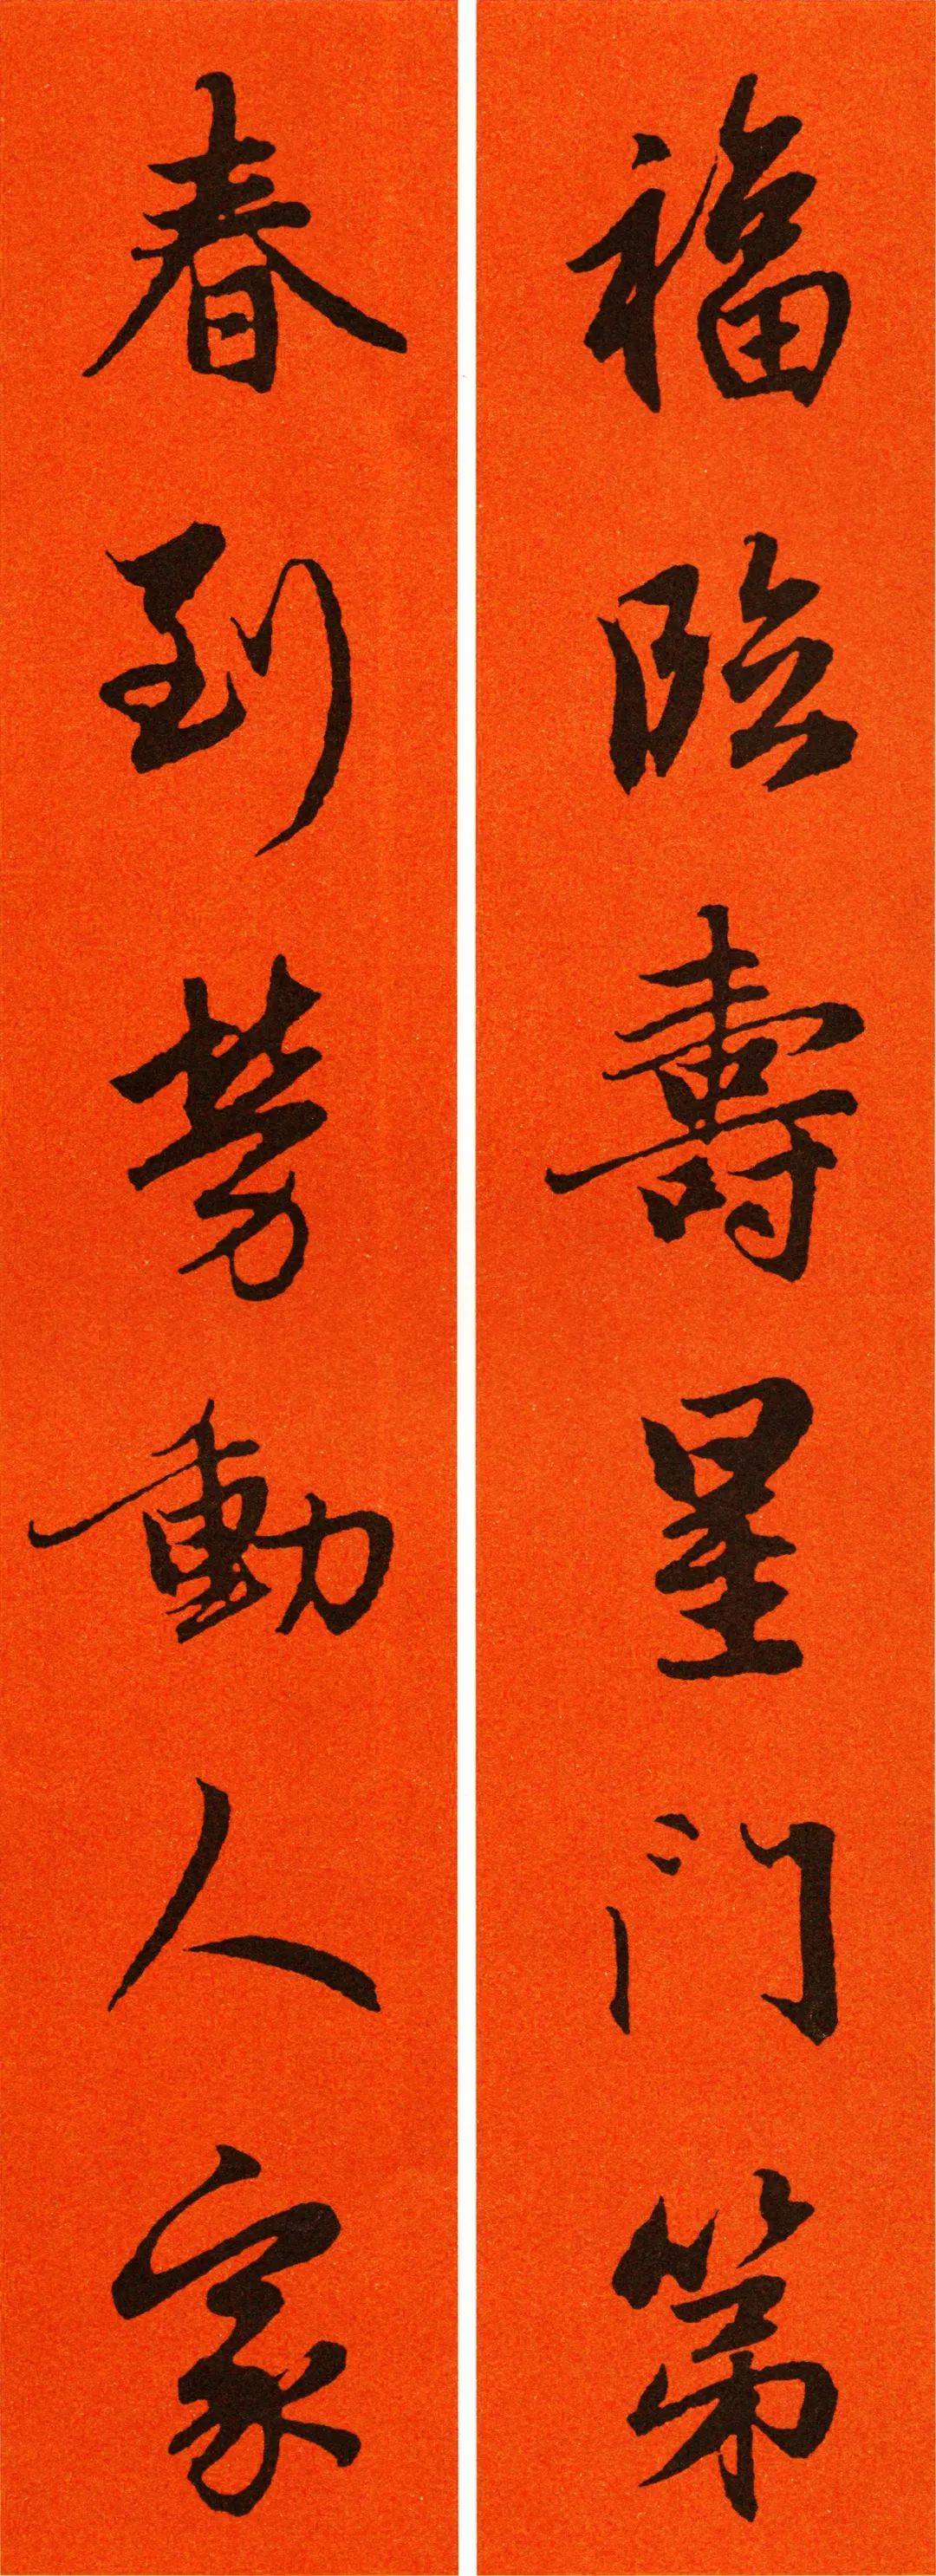 福临壽星门第
春到劳動人家